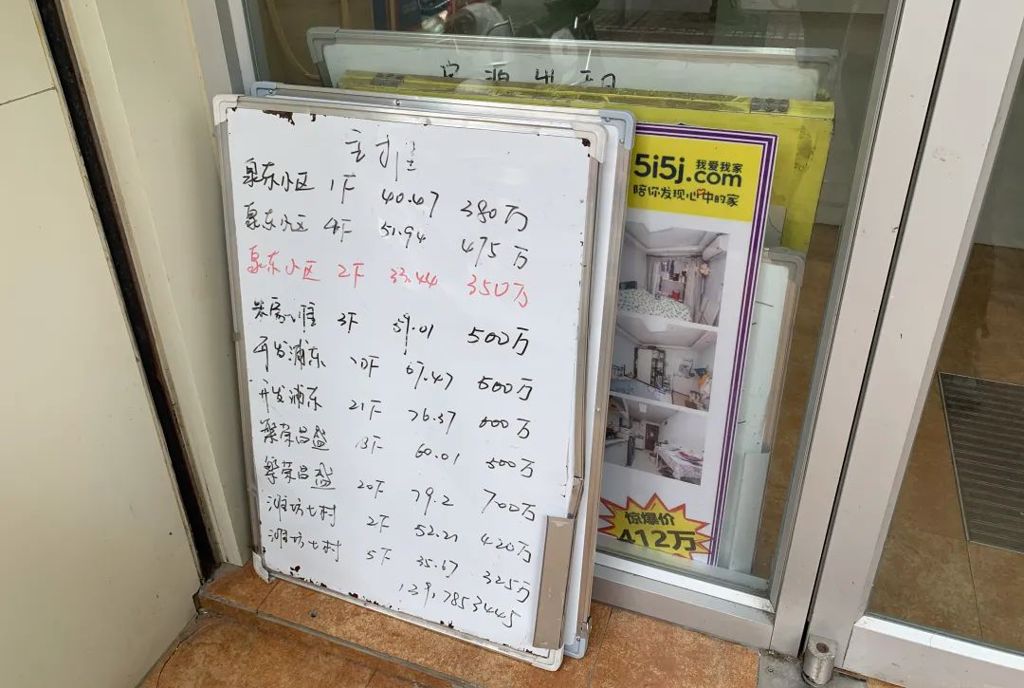 主推
泉东小区 1F 40.47 380万
泉东小区 4F 51.94 475万
泉东小区 2F 33.44 350万
3F 59.01 500万
开发浦东 10F 67.47 500万
开发浦东 21F 76.37 600万
繁荣昌盛 13F 60.01 500万
繁荣昌盛 20F 79.2 700万
潍坊七村 2F 52.21 420万
潍坊七村 5F 35.67 325万
13917853445
5i5j.com 我爱我家
陪你发现心中的家
惊爆价
412万